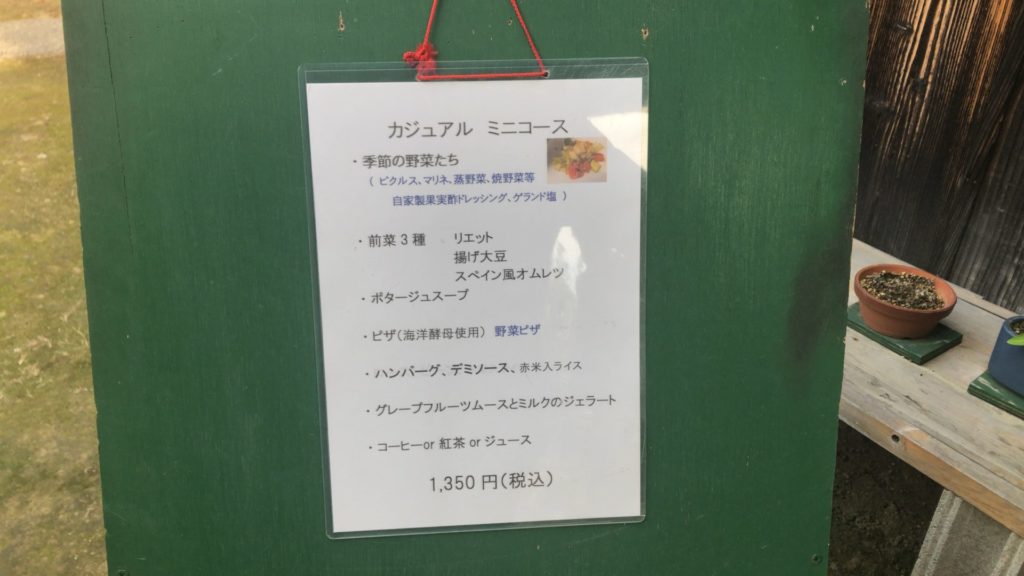 カジュアル ミニコース
・季節の野菜たち
( ピクルス、マリネ、蒸野菜、焼野菜等
自家製果実酢ドレッシング、ゲランド塩 )
・前菜3種 リエット
揚げ大豆
スペイン風オムレツ
・ポタージュスープ
・ピザ(海洋酵母使用) 野菜ピザ
・ハンバーグ、デミソース、赤米入ライス
・グレープフルーツムースとミルクのジェラート
・コーヒーor 紅茶 or ジュース
1,350 円(税込)